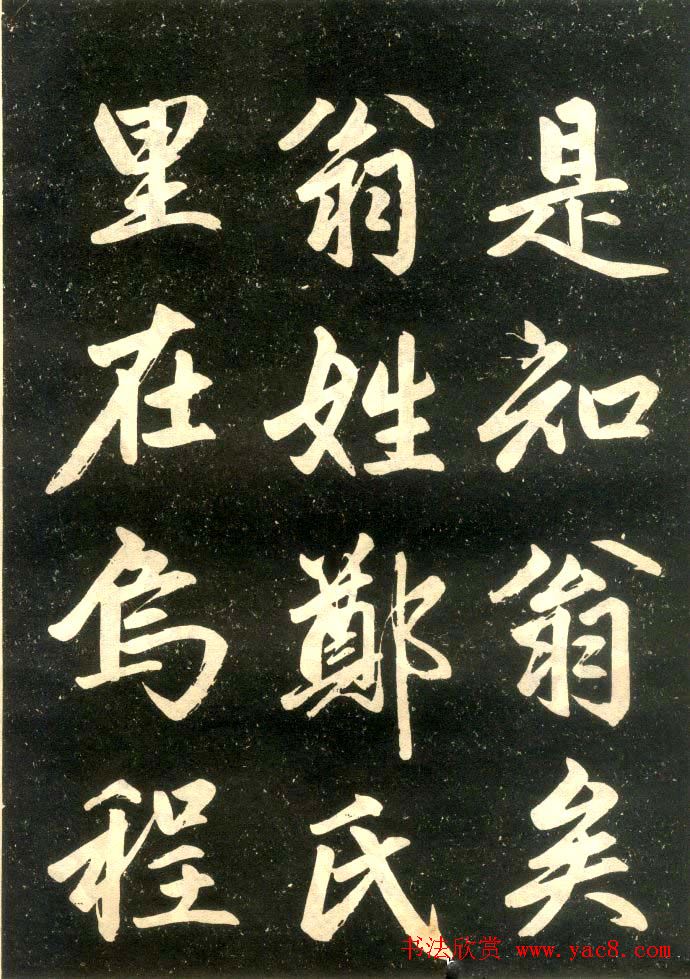 是知翁矣
翁姓鄭氏
里在烏程
书法欣赏 www.yac8.com